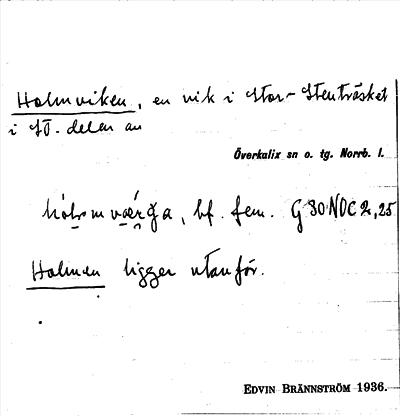 Holmviken, en vik i Stor-Stenträsket
i SÖ. delen av
Överkalix sn o. tg. Norrb. l.
bf. fem. G 30 NDC 2,25
Holmen ligger utanför.
EDVIN BRÄNNSTRÖM 1936.